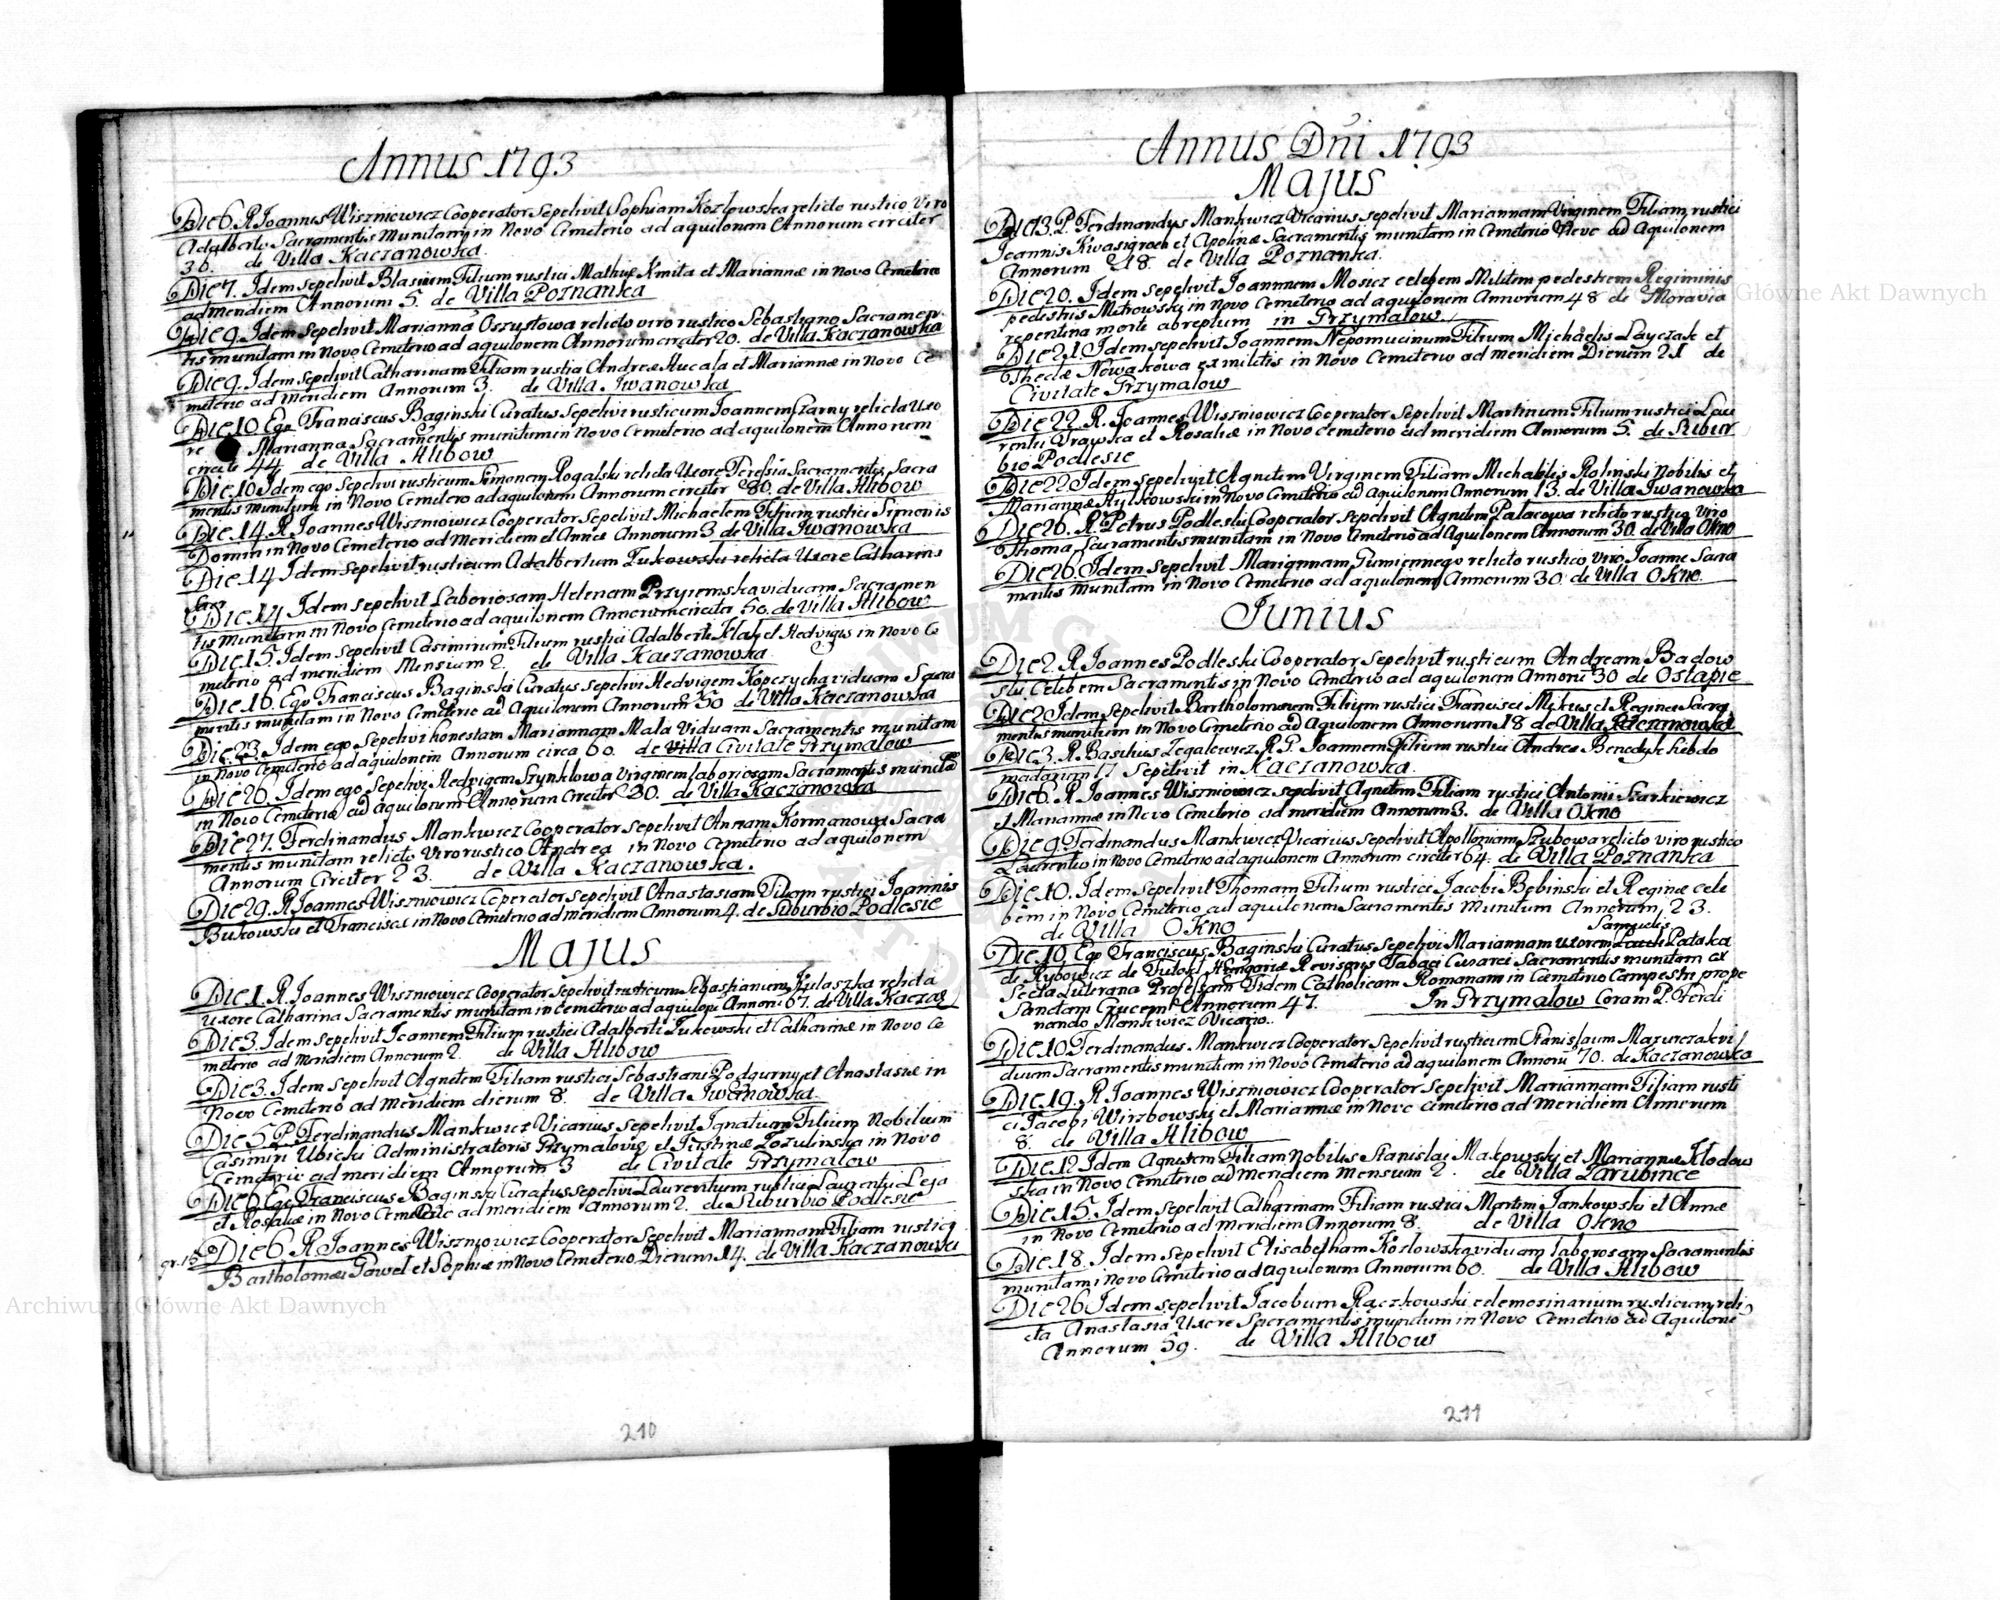 Annus 1793
Die 6. R. Joannes Wiszniowicz Cooperator Sepelivit Sophiam Kozlowska relicto rustico Viro
Adalberto Sacramentis Munitam in Novo Cemeterio ad aquilonem Annorum circiter
36. de Villa Kaczanowka.
Die 7. Idem sepelivit Blasium Filium rustici Kmita et Mariannæ in Novo Cemeterio
ad meridiem Annorum 5. de Villa Poznanka
Die 9. Idem Sepelivit Marianna Oszustowa relicto viro rustico Sebastyano Sacramen
tis munitam in Novo Cemeterio ad aquilonem Annorum circiter 20. de Villa Kaczanowka
Die 9. Idem sepelivit Catharinam Filiam rustici Andreæ Hucala et Mariannæ in Novo Ce
meterio ad meridiem Annorum 3. de Villa Iwanowka
Die 10 Ego Franciscus Baginski Curatus sepelivi rusticum Joannem Czarny relicta Uxo
re Marianna Sacramentis munitum in Novo Cemeterio ad aquilonem Annorum
circite 44. de Villa Hlibow
Die 10 Idem ego Sepelivi rusticum Simonem Rogalski relicta Uxore Teresia Sacramentis Sacra
mentis munitum in Novo Cemeterio ad aquilonem Annorum circiter 80. de Villa Hlibow
Die 14. R. Joannes Wiszniowicz Cooperator Sepelivit Michaelem Filium rustici Simonis
Domin in Novo Cemeterio ad Meridiem et Annæ Annorum 3 de Villa Iwanowka
Die 14 Idem Sepelivit rusticum Adalbertum Zukowski relicta Uxore Catharina
Sacr
Die 14 Idem Sepelivit Laboriosam Helenam Przyiemska viduam Sacramen
tis Munitam in Novo Cemeterio ad aquilonem Annorum circita 50. de Villa Hlibow
Die 15. Idem Sepelivit Casimirum Filium rustici Adalberti et Hedvigis in Novo Ce
meterio ad meridiem Mensium 2. de Villa Kaczanowka
Die 16. Ego Franciscus Baginski Curatus sepelivi Hedvigem Kopczycha viduam Sacra
mentis munitam in Novo Cemeterio ad Aquilonem Annorum 50 de Villa Kaczanowka
Die 23. Idem ego Sepelivi honestam Mariannam Mala Viduam Sacramentis munitam
in Novo Cemeterio ad aquilonem Annorum circa 60. de Villa Civitate Grzymalow
Die 26. Idem ego Sepelivi Hedvigem Szynklowa Virginem laboriosam Sacramentis munita
in Novo Cemeterio ad aquilonem Annorum Circiter 30. de Villa Kaczanowka
Die 27. Ferdinandus Mankwicz Cooperator sepelivit Annam Kormanowa Sacra
mentis munitam relicto Viro rustico Andrea in Novo Cemeterio ad aquilonem
Annorum Circiter 23. de Villa Kaczanowka.
Die 29. R. Joannes Wiszniowicz Coperator Sepelivit Anastasiam Filiam rustici Joannis
Bukowski et Franciscæ in Novo Cemeterio ad meridiem Annorum 4. de Suburbio Podlesie
Majus
Die 1. R. Joannes Wiszniowicz Cooperator Sepelivit rusticum Sebastianum Kulaszka relicta
Uxore Catharina Sacramentis munitam in Cemeterio ad aquilone Annoru 67. de Villa Kaczan
Die 3. Idem Sepelivit Joannem Filium rustici Adalberti Zukowski et Catharinæ in Novo Ce
meterio ad meridiem Annorum 2. de Villa Hlibow
Die 3. Idem sepelivit Agnetem Filiam rustici Sebastiani Podgurny et Anastasiæ in
Novo Cemeterio ad Meridiem dierum 8. de Villa Iwanowka.
Die 5 P. Ferdinandus Mankwicz Vicarius sepelivit Ignatium Filium Nobilium
Casimiri Ubicki Administratoris Grzymaloviæ et Justinæ Tozulinska in Novo
Cemeterio ad meridiem Annorum 3 de Civitate Grzymalow
Die 6 Ego Franciscus Baginski Curatus sepelivi Laurentium rustici Laurentii Leja
et Rosaliæ in Novo Cemeterio ad meridiem Annorum 2. de Suburbio Podlesie
gr. 15 Die 6 R. Joannes Wiszniowicz Cooperator Sepelivit Mariannam Filiam rustici
Bartholomæi Pawel et Sophiæ in Novo Cemeterio Dierum 14. de Villa Kaczanowka
210
Annus Dni 1793
Majus
Die 13. P. Ferdinandus Mankwicz Vicarius sepelivit Mariannam Virginem Filiam rustici
Joannis et Apolinæ Sacramentis munitam in Cemeterio Novo ad Aquilonem
Annorum 18. de Villa Poznanka.
Die 20. Idem sepelivit Joannem Mosicz celebem Militem pedestrem Regiminis
pedestris Mitrowski in Novo Cemeterio ad aquilonem Annorum 48 de Moravia
repentina morte abreptum in Grzymalow.
Die 21. Idem sepelivit Joannem Nepomucinum Filium Michaelis Layczak et
Theclæ Nowakowa ex militis in Novo Cemeterio ad meridiem Dierum 21 de
Civitate Grzymalow
Die 22. R. Joannes Wiszniowicz Cooperator Sepelivit Martinum Filium rustici Lau
rentii et Rosaliæ in Novo Cemeterio ad meridiem Annorum 5. de Subur
bio Podlesie
Die 22 Idem sepelivit Agnetem Virginem Filiam Michaelis Rolinski Nobilis et
Mariannæ in Novo Cemeterio ad Aquilonem Annorum 13. de Villa Iwanowka
Die 26. R. Petrus Podleski Cooperator Sepelivit Agnetem Palacowa relicto rustico viro
Thoma, Sacramentis munitam in Novo Cemeterio ad Aquilonem Annorum 30. de Villa Okno
Die 26. Idem Sepelivit Mariannam Gumiennego relicto rustico Viro Joanne Sacra
mentis munitam in Novo Cemeterio ad aquilonem Annorum 30 de Villa Okno
Junius
Die 2. R. Joannes Podleski Cooperator Sepelivit rusticum Andream Badow
ski Celebem Sacramentis in Novo Cemeterio ad aquilonem Annoru 30 de Ostapie
Die 2 Idem Sepelivit Bartholomeum Filium rustici Francisci Mykus et Reginæ Sacra
mentis munitum in Novo Cemeterio ad Aquilonem Annorum 18 de Villa Kaczanowka
Die 3. R. Basilius Zegalewicz R. G. Joannem Filium rustici Andreæ Benedyk hebdo
madarum 17 Sepelivit in Kaczanowka.
Die 6. R. Joannes Wiszniowicz sepelivit Agnetem Filiam rustici Antonii Starkiewicz
et Mariannæ in Novo Cemeterio ad meridiem Annorum 3. de Villa Okno
Die 9. Ferdinandus Mankwicz Vicarius Sepelivit Apolloniam Szubowa relicto viro rustico
Laurentio in Novo Cemeterio ad aquilonem Annorum circiter 64. de Villa Poznanka
Die 10. Idem Sepelivit Thomam Filium rustici Jacobi Bębinski et Reginæ cele
bem in Novo Cemeterio ad aquilonem Sacramentis munitum Annorum, 23.
de Villa Okno
Samuelis
Die 10 Ego Franciscus Baginski Curatus Sepelivi Mariannam uxorem Pataka
de Rybowicz de Hungariæ Revisoris Tabaci Cæsarei Sacramentis munitam ex
Secta Luterana Professam Fidem Catholicam Romanam in Cemeterio Campestri prope
Sanctam Crucem Annorum 47. In Grzymalow Coram P. Ferdi
nando Mankwicz Vicario.
Die 10 Ferdinandus Mankwicz Cooperator Sepelivit rusticum Stanislaum Mazurczak vi
duum Sacramentis munitum in Novo Cemeterio ad aquilonem Annoru 70. de Kaczanowka
Die 19. R. Joannes Wiszniowicz Cooperator Sepelivit Mariannam Filiam rusti
ci Jacobi Wirzbowski et Mariannæ in Novo Cemeterio ad Meridiem Annorum
8. de Villa Hlibow
Die 12 Idem Agnetem Filiam Nobilis Stanislai Makowski et Mariannæ Klodow
ska in Novo Cemeterio ad Meridiem Mensium 2. de Villa Zarubince
Die 15. Idem Sepelivit Catharinam Filiam rustici Martini Jankowski et Annæ
in Novo Cemeterio ad Meridiem Annorum 8. de Villa Okno
Die 18. Idem Sepelivit Elisabetham Koslowska viduam laborosam Sacramentis
munitam i Novo Cemeterio ad aquilonem Annorum 60. de Villa Hlibow
Die 26 Idem sepelivit Jacobum Raczkowski eelemosinarium rusticum reli
cta Anastasia Uxore Sacramentis munitum in Novo Cemeterio ad Aquilone
Annorum 59. de Villa Hlibow
211
Archiwum Główne Akt Dawnych
Archiwum Główne Akt Dawnych